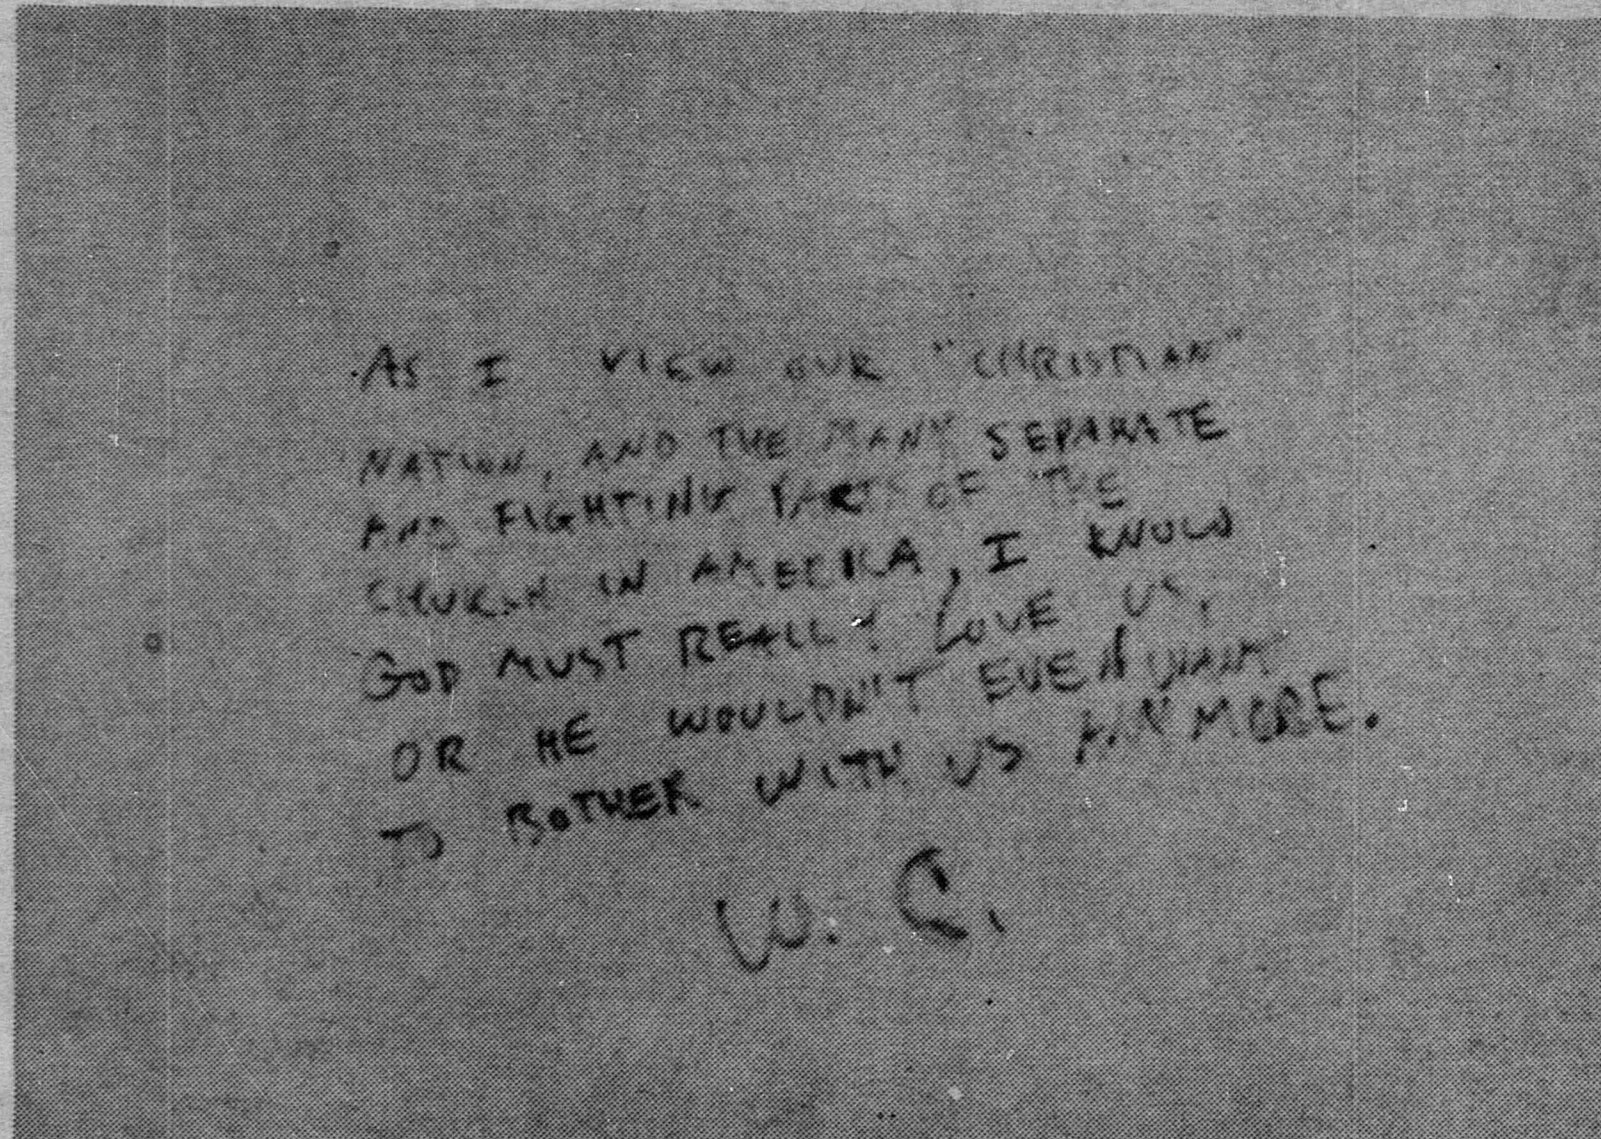 AS I VIEW OUR "CHRISTIAN"
NATION, AND THE MANY SEPARATE
AND FIGHTING PARTS OF THE
CHURCH IN AMERICA, I KNOW
GOD MUST REALLY LOVE US,
OR HE WOULDN'T EVEN WANT
TO BOTHER WITH US ANYMORE.
W.